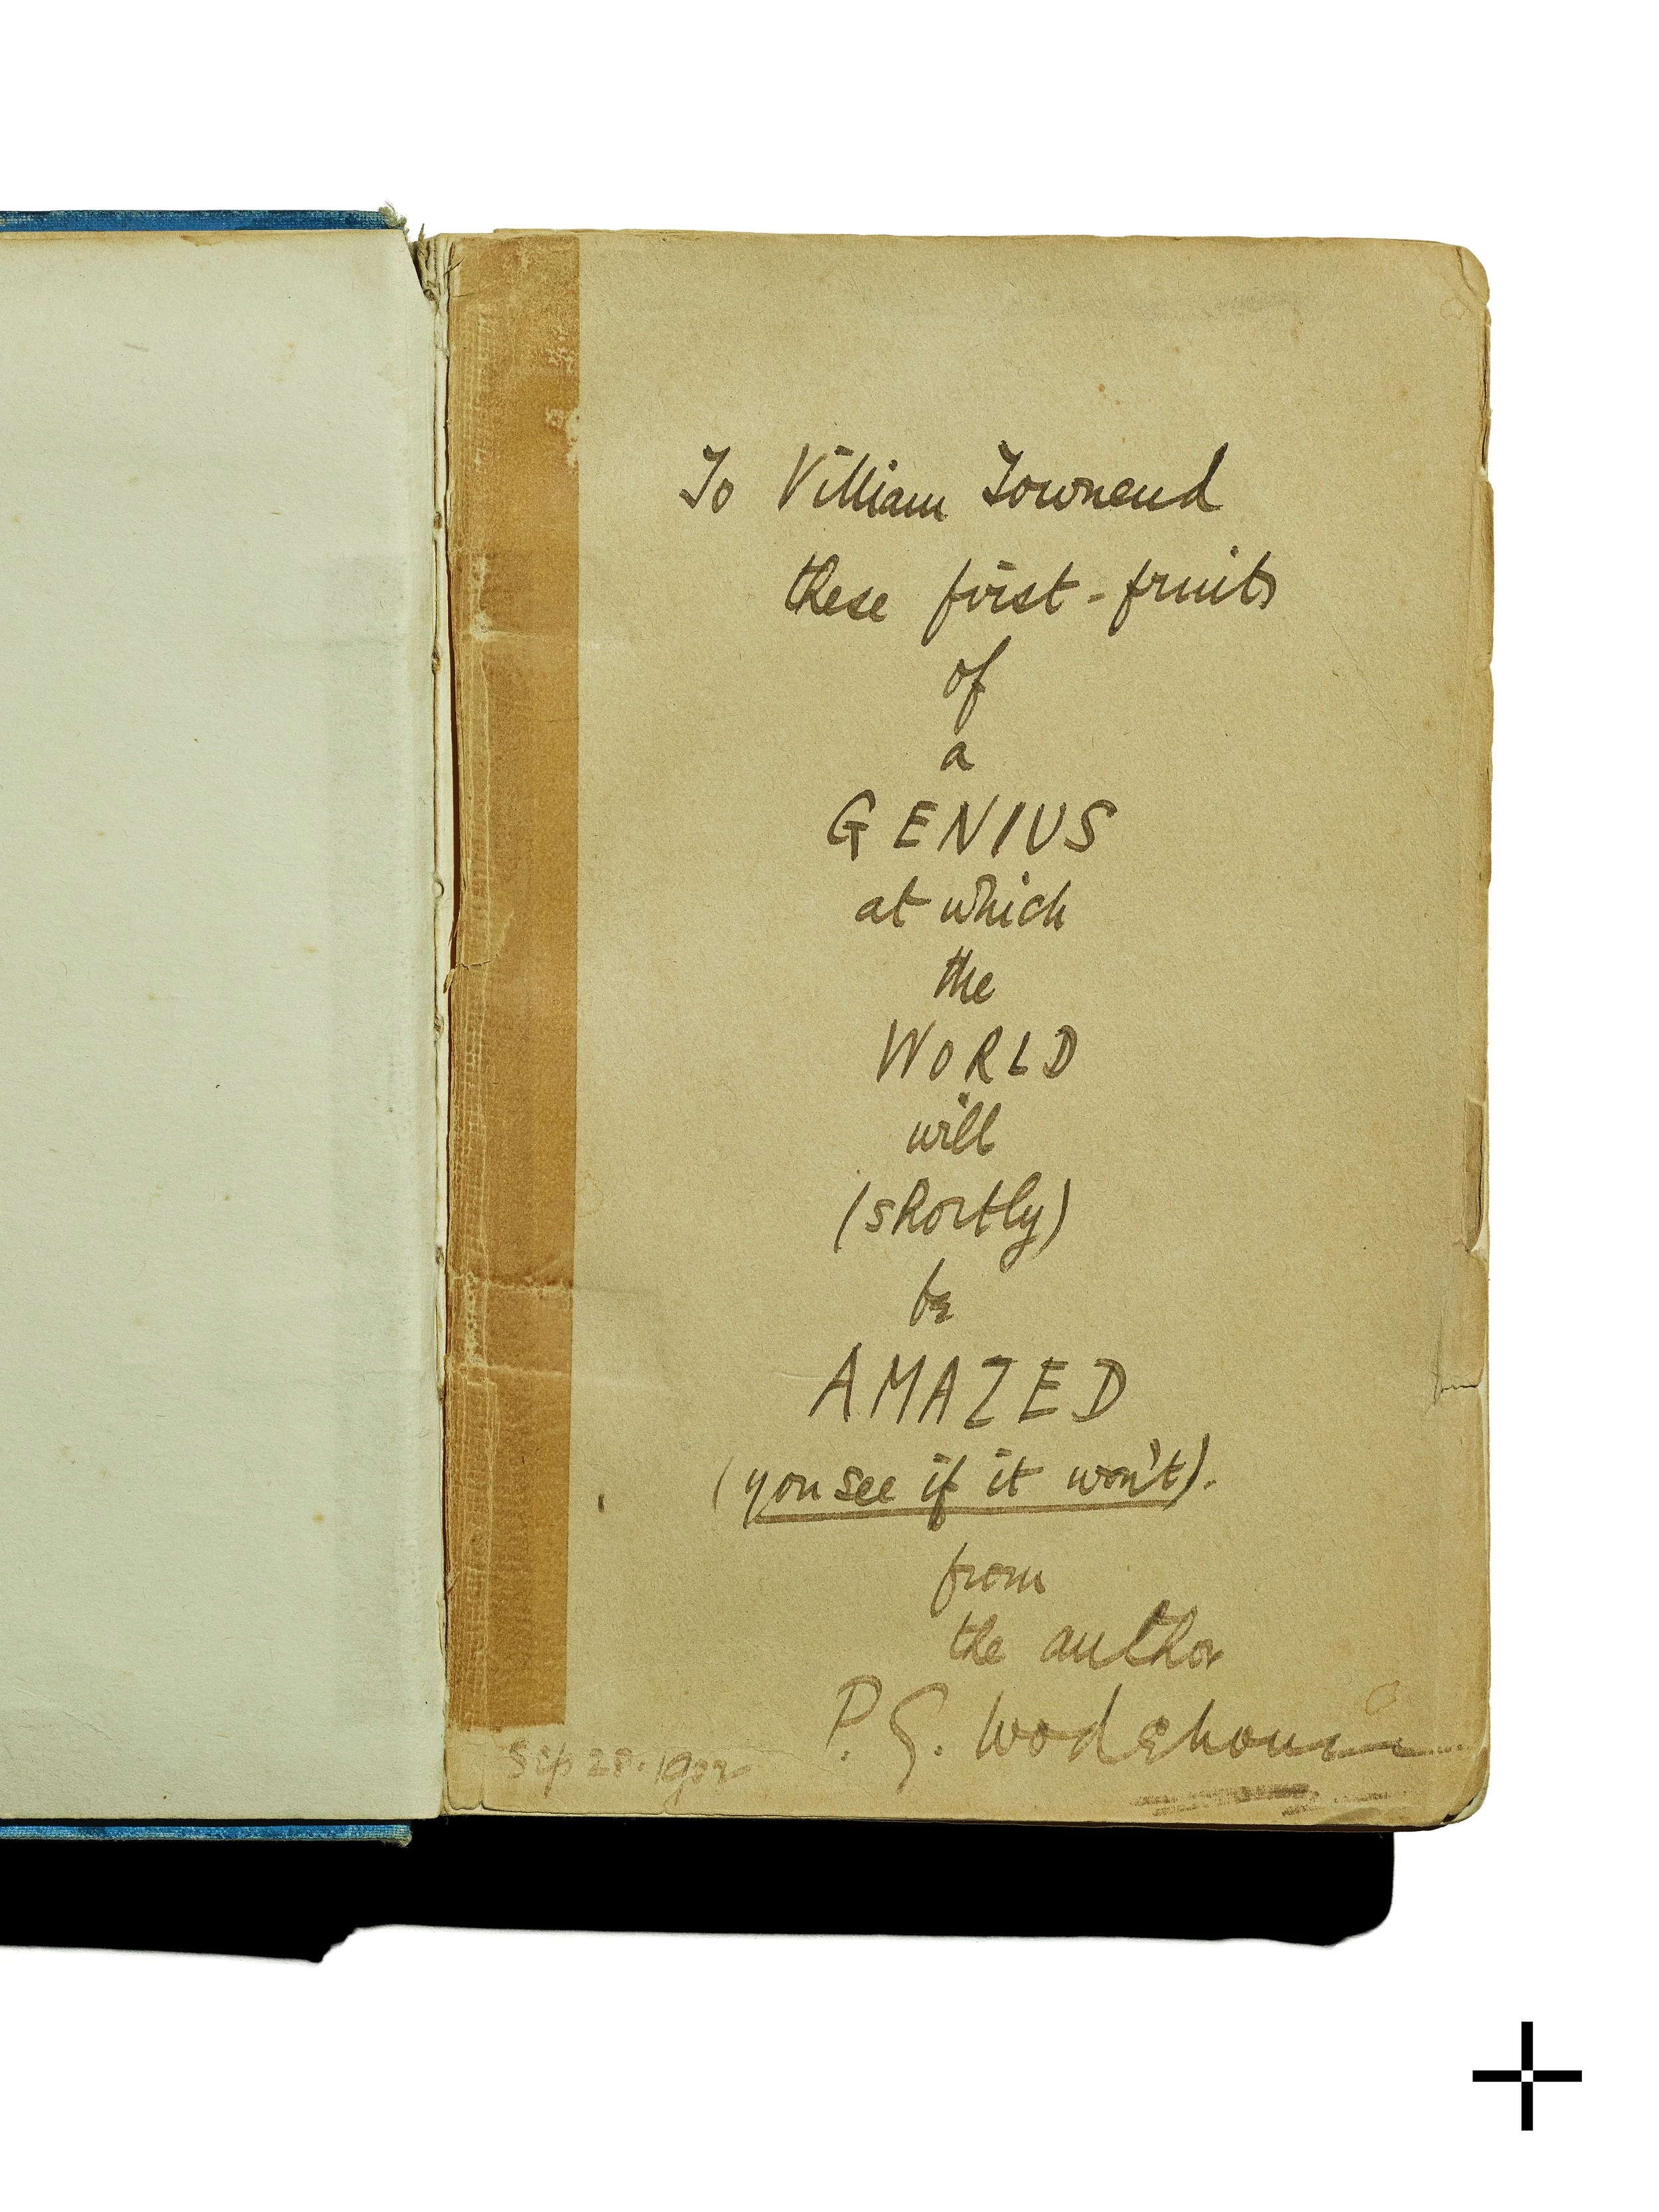 To William Townend
these first-fruits
of
a
GENIUS
at which
the
WORLD
will
(shortly)
be
AMAZED
(you see if it won't).
from
the author
P. G. Wodehouse
Sep 28. 1902